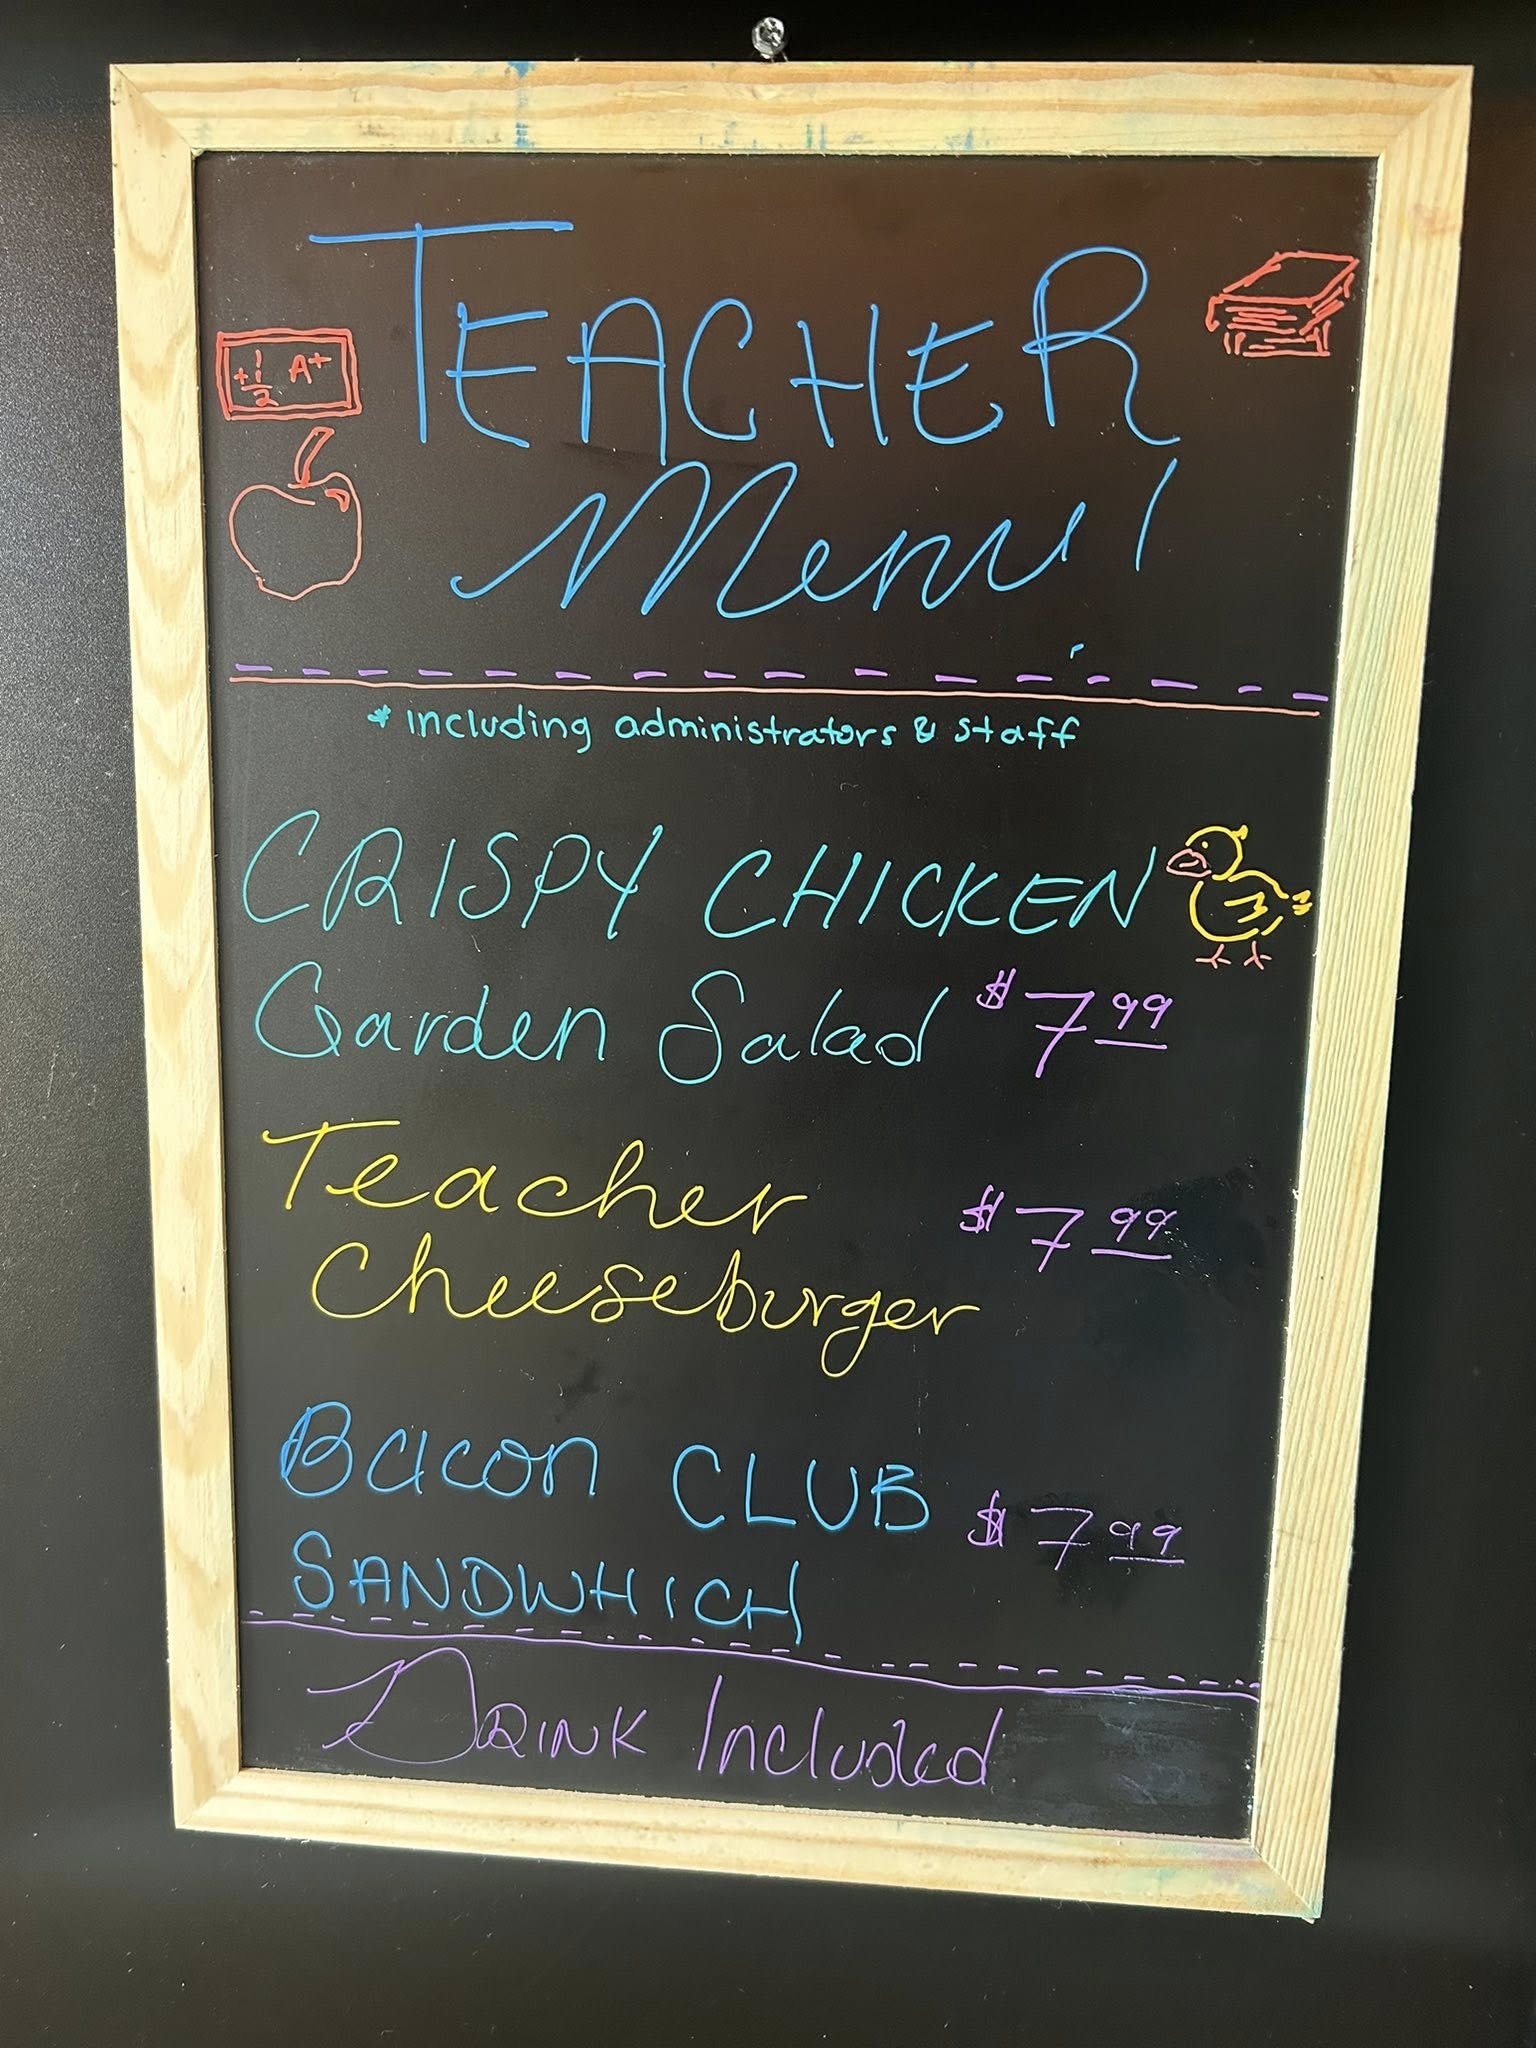 TEACHER
Menu!
+ 1/2 A+
* including administrators & staff
CRISPY CHICKEN
Garden Salad $7.99
Teacher $7.99
Cheeseburger
Bacon CLUB $7.99
SANDWHICH
DRINK Included